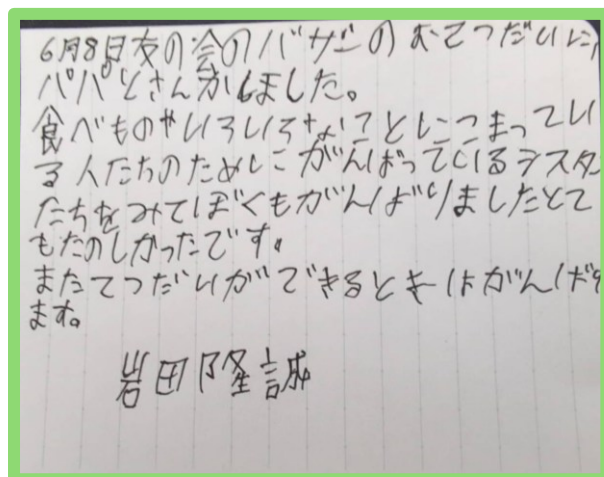 6月8日友の会のバザーのおてつだいに
パパとさんかしました。
食べものやいろいろなことにこまってい
る人たちのためにがんばっているシスタ
たちをみてぼくもがんばりましたとて
もたのしかったです。
またてつだいができるときはがんばり
ます。
岩田隆誠